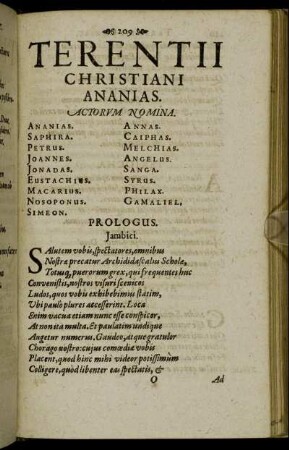 209
TERENTII
CHRISTIANI
ANANIAS.
ACTORVM NOMINA.
ANANIAS. ANNAS.
SAPHIRA. CAIPHAS.
PETRUS. MELCHIAS.
JOANNES. ANGELUS.
JONADAS. SANGA.
EUSTACHIUS. SYRUS.
MACARIUS. PHILAX.
NOSOPONUS. GAMALIEL.
SIMEON.
PROLOGUS.
Jambici.
SAlutem vobis, spectatores, omnibus
Nostræ precatur Archididascalus Scholæ,
Totusq; puerorum grex, qui frequentes huc
Convenistis, nostros visuri scenicos
Ludos, quos vobis exhibebimus statim,
Ubi paulò plures accesserint. Loca
Enim vacua etiam nunc esse conspicor,
At non ita multa. Et paulatim undique
Augetur numerus. Gaudeo, atque gratulor
Chorago nostro: cujus comœdiæ vobis
Placent, quod hinc mihi videor potissimùm
Colligere, quod libenter eas spectatis, &
O Ad